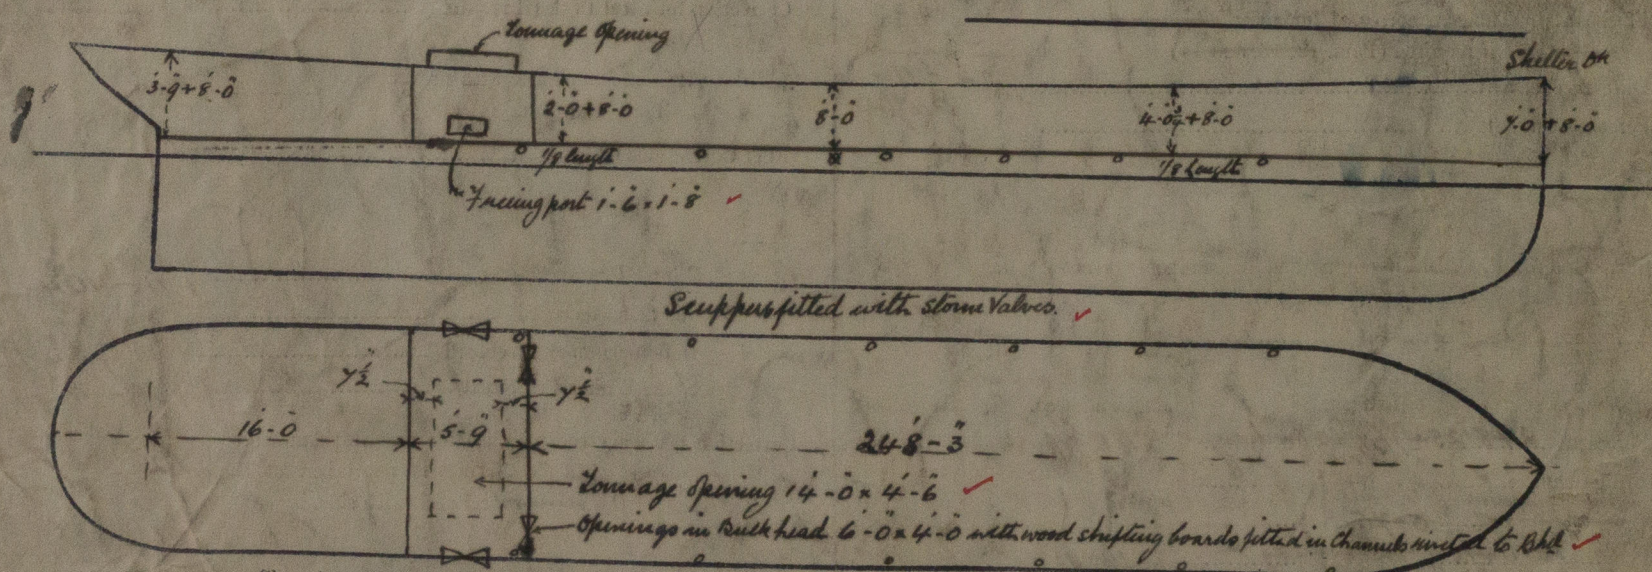 Tonnage opening
Shelter Dk
3'-9"+8'-0"
2'-0"+8'-0"
8'-0"
4'-0¾"+8'-0"
7'-0"+8'-0"
1/8 length
1/8 length
Freeing port 1'-6" x 1'-8"
Scuppers fitted with Storm Valves.
7½"
7½"
16'-0"
5'-9"
248'-3"
Tonnage opening 14'-0" x 4'-6"
Openings in Bulkhead 6'-0" x 4'-0" with wood shifting boards fitted in Channels riveted to Bhd